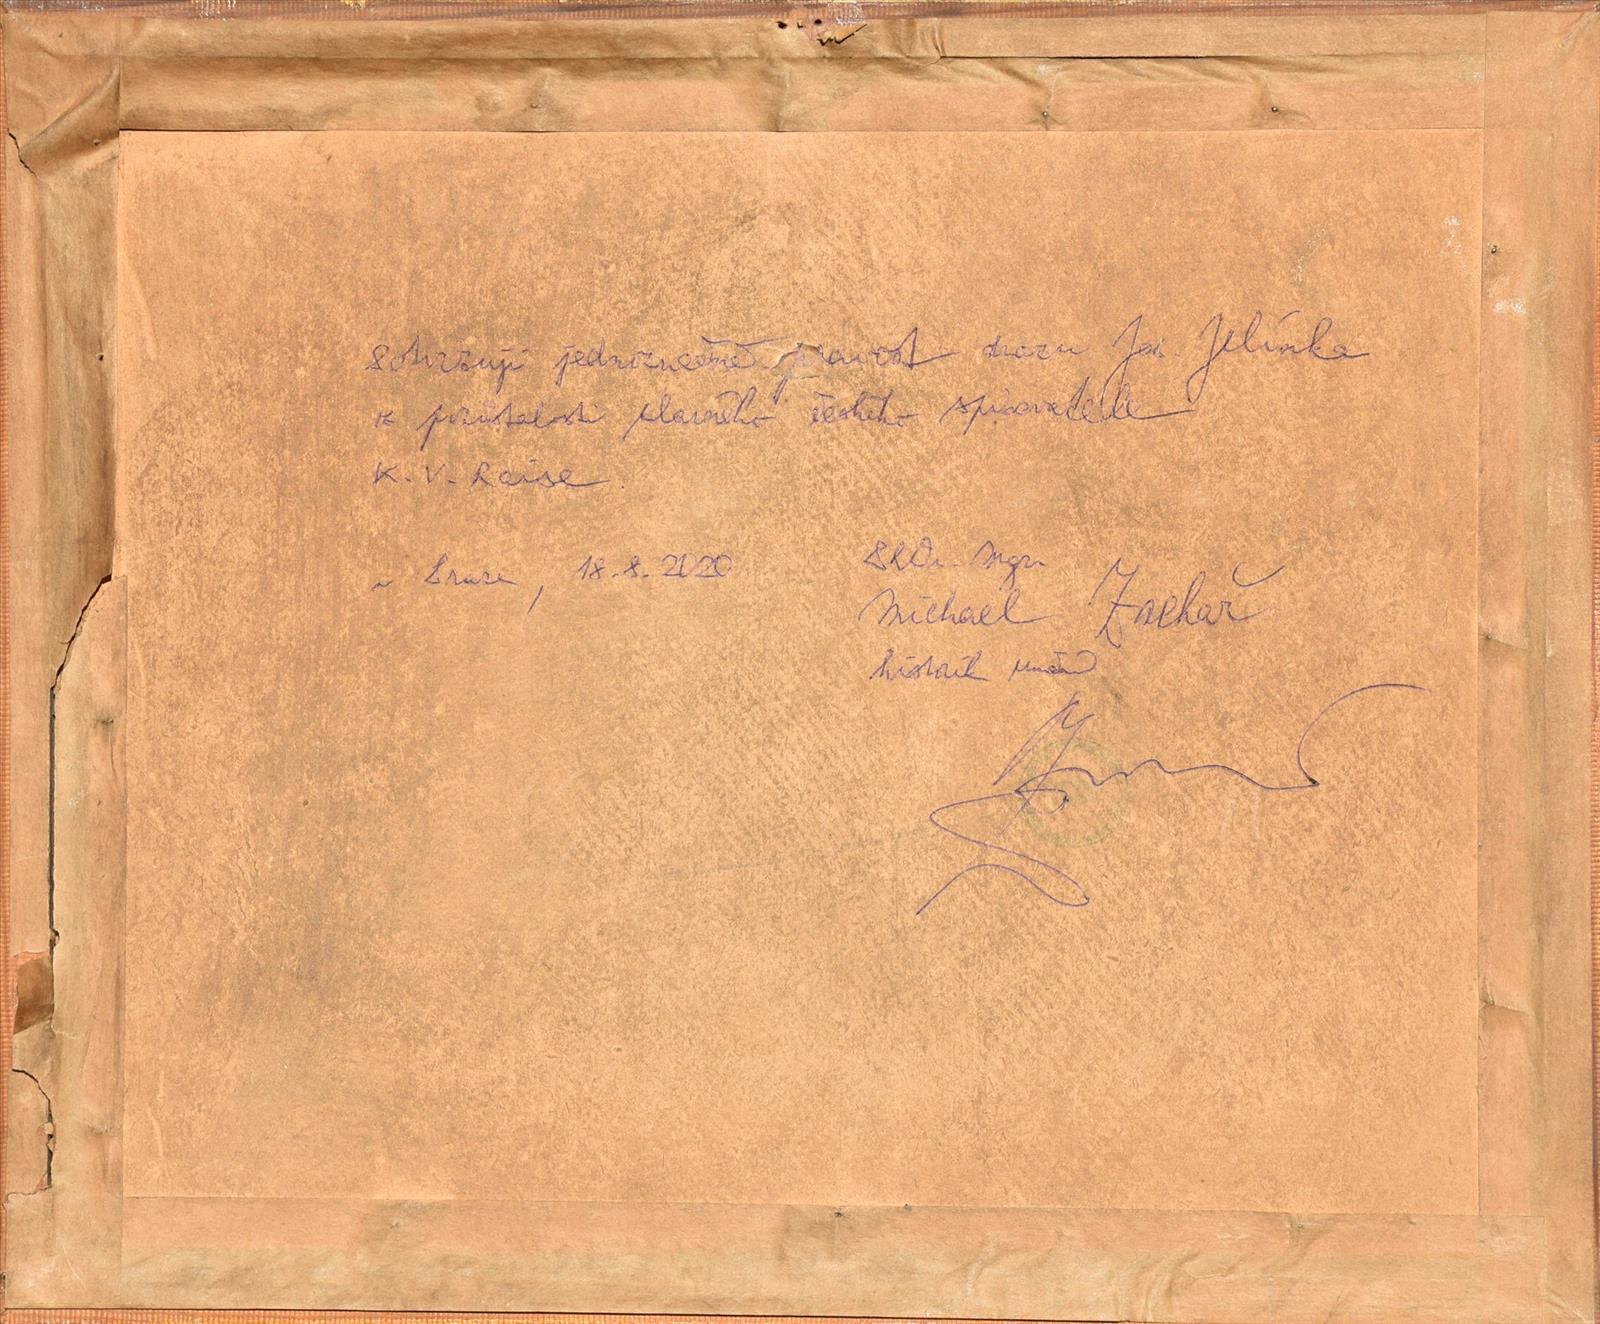 Potvrzuji jednoznačně pravost obrazu Jos. Jelínka
z pozůstalosti slavného českého spisovatele
K. V. Raise
v Praze, 18.8.2020
PhDr. Mgr.
Michael Zachař
historik umění